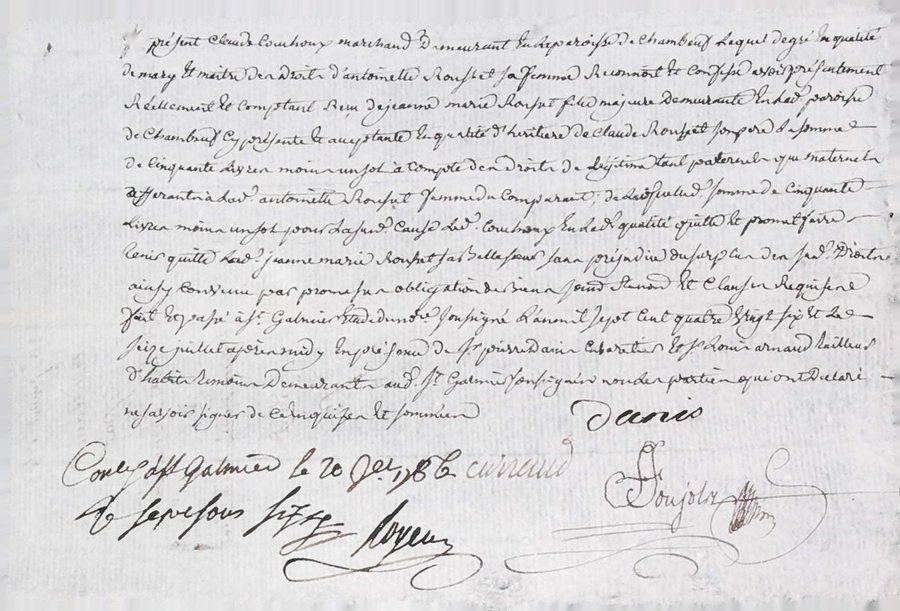 présent Claude Couhoux marchand Demeurant En la paroisse de Chambeuf Lequel de gré En qualité
de mary Et maitre des droits d'antoinette Rousset sa femme Reconnoit Et Confesse avoir présentement
Réellement Et Comptant Reçu de jeanne marie Rousset fille majeure Demeurante En lad. paroisse
de Chambeuf Cy présente Et acceptante En qualité d'heritiere de Claude Rousset son pere la somme
de Cinquante Livres moins un sol à Compte des Droits de Légitime tant paternels que maternels
afferants à Lad. antoinette Rousset femme du Comparant, de Laquelle somme de Cinquante
Livres moins un sol pour La susd. Cause Led. Couhoux En Lad. qualité quitte Et promet faire
tenir quitte Lad. jeanne marie Rousset sa Belle soeur sans préjudice du surplus des susd. Droits
ainsy Convenu par promesse obligation de biens soumd. Renond. Et Clauses Requises
fait Et passé à St. Galmier Etude du nore. soussigné L'an mil sept Cent quatre vingt six Et Le
seize juillet après midy En présence de Sr. pierre Danis Cabaretier Et Sr. Louis arnaud tailleur
d'habits Temoins Demeurants aud. St. Galmier soussignés non les parties qui ont Declaré
ne savoir signer de Ce Enquises Et sommées
Danis
Conlé à St Galmier le 20 Jet. 1786
Soujols
R. sept sous six